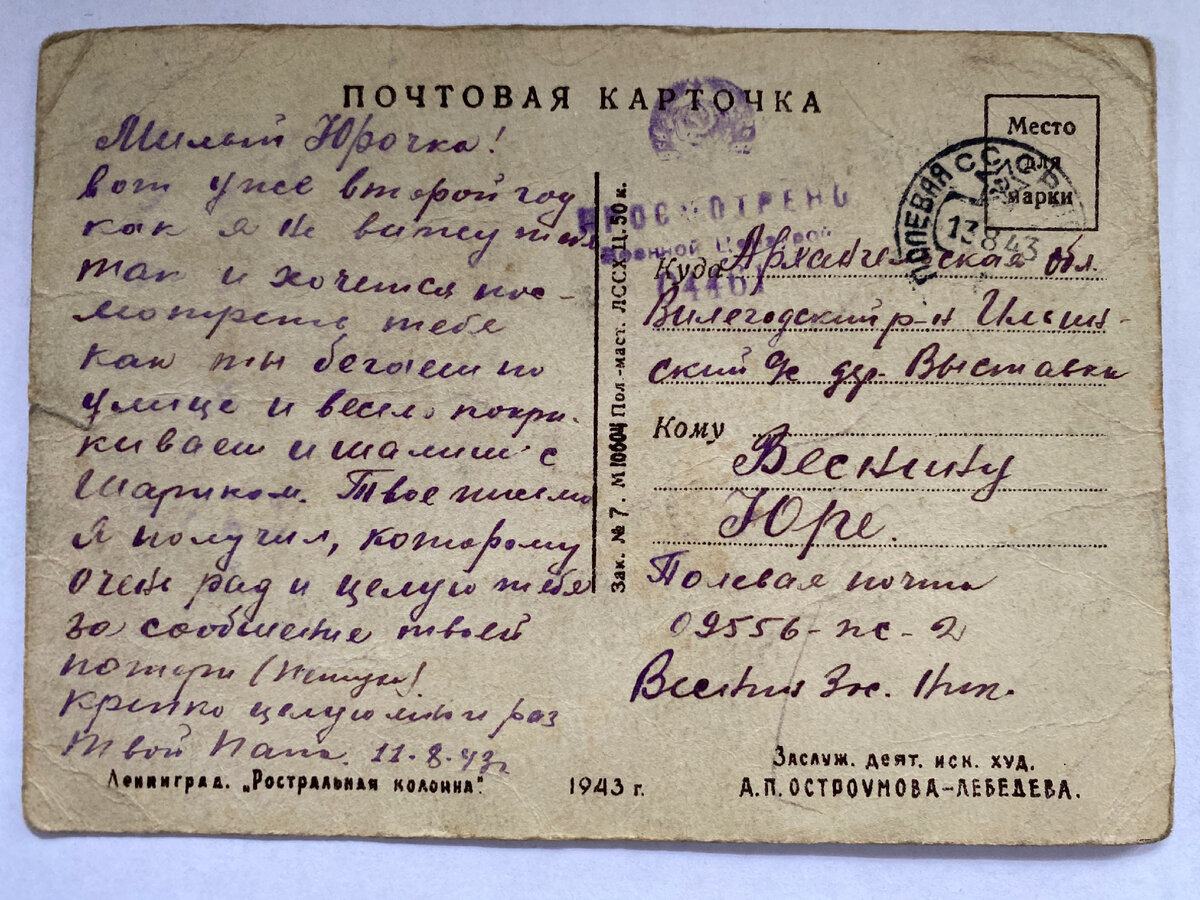 ПОЧТОВАЯ КАРТОЧКА
Место
для
марки
Милый Юрочка!
вот уже второй год
как я не вижу тебя
так и хочется пос-
мотреть тебе
как ты бегаеш по
улице и весело покри-
киваеш и шалиш с
Шариком. Твое писмо
я получил, которому
очень рад и целую тебя
за сообщение твоей
потери
крепко целую много раз
твой Папа. 11-8-43г
ПРОСМОТРЕНО
Военной Цензурой
04461
ПОЛЕВАЯ
СССР
13 8 43
Куда Архангельская обл.
Вилегодский р-н Ильин-
ский с/с дер. Выставка
Кому
Веснину
Юре.
Полевая почта
09556-пс-2
Веснин
Зак. № 7. М 10604 Пол.-маст. ЛССХ. Ц. 50 к.
Ленинград. „Ростральная колонна".
1943 г.
Заслуж. деят. иск. худ.
А.П. ОСТРОУМОВА-ЛЕБЕДЕВА.